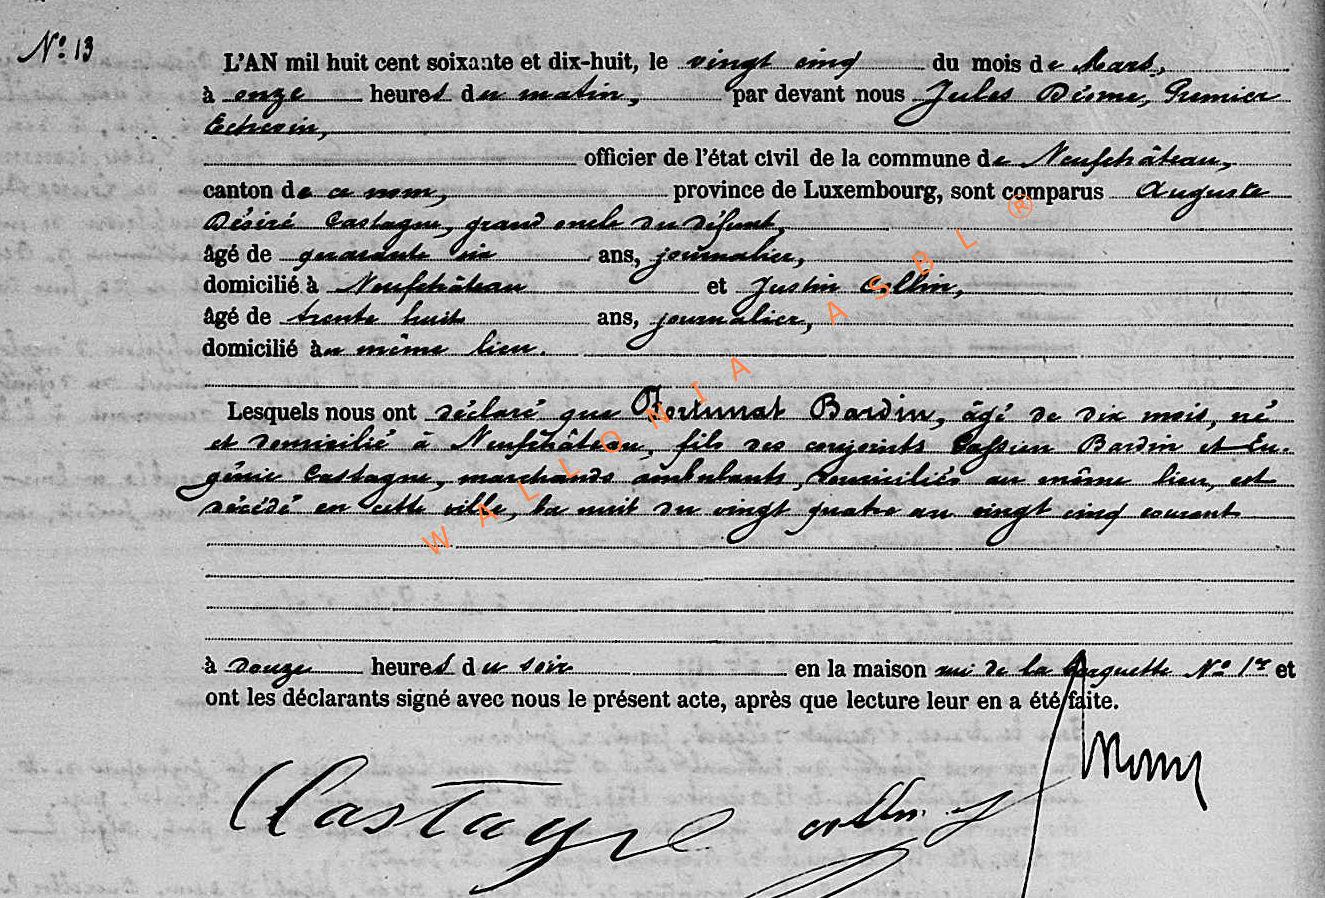 N° 13
L'AN mil huit cent soixante et dix-huit, le vingt cinq du mois de Mars,
à onze heures du matin, par devant nous Jules Diome, Premier
Echevin,
officier de l'état civil de la commune de Neufchâteau,
canton de ce nom, province de Luxembourg, sont comparus Auguste
Désiré Castagne, grand oncle du défunt,
âgé de quarante six ans, journalier,
domicilié à Neufchâteau et Justin Collin,
âgé de trente huit ans, journalier,
domicilié au même lieu.
Lesquels nous ont déclaré que Fortunat Bardin, âgé de dix mois, né
et domicilié à Neufchâteau, fils des conjoints Bardin et Eu-
génie Castagne, marchands ambulants, domiciliés au même lieu, est
décédé en cette ville, la nuit du vingt quatre au vingt cinq courant
à douze heures du soir en la maison rue de la N° 1er et
ont les déclarants signé avec nous le présent acte, après que lecture leur en a été faite.
Castagne Collin J
WALLONIA ASBL ®